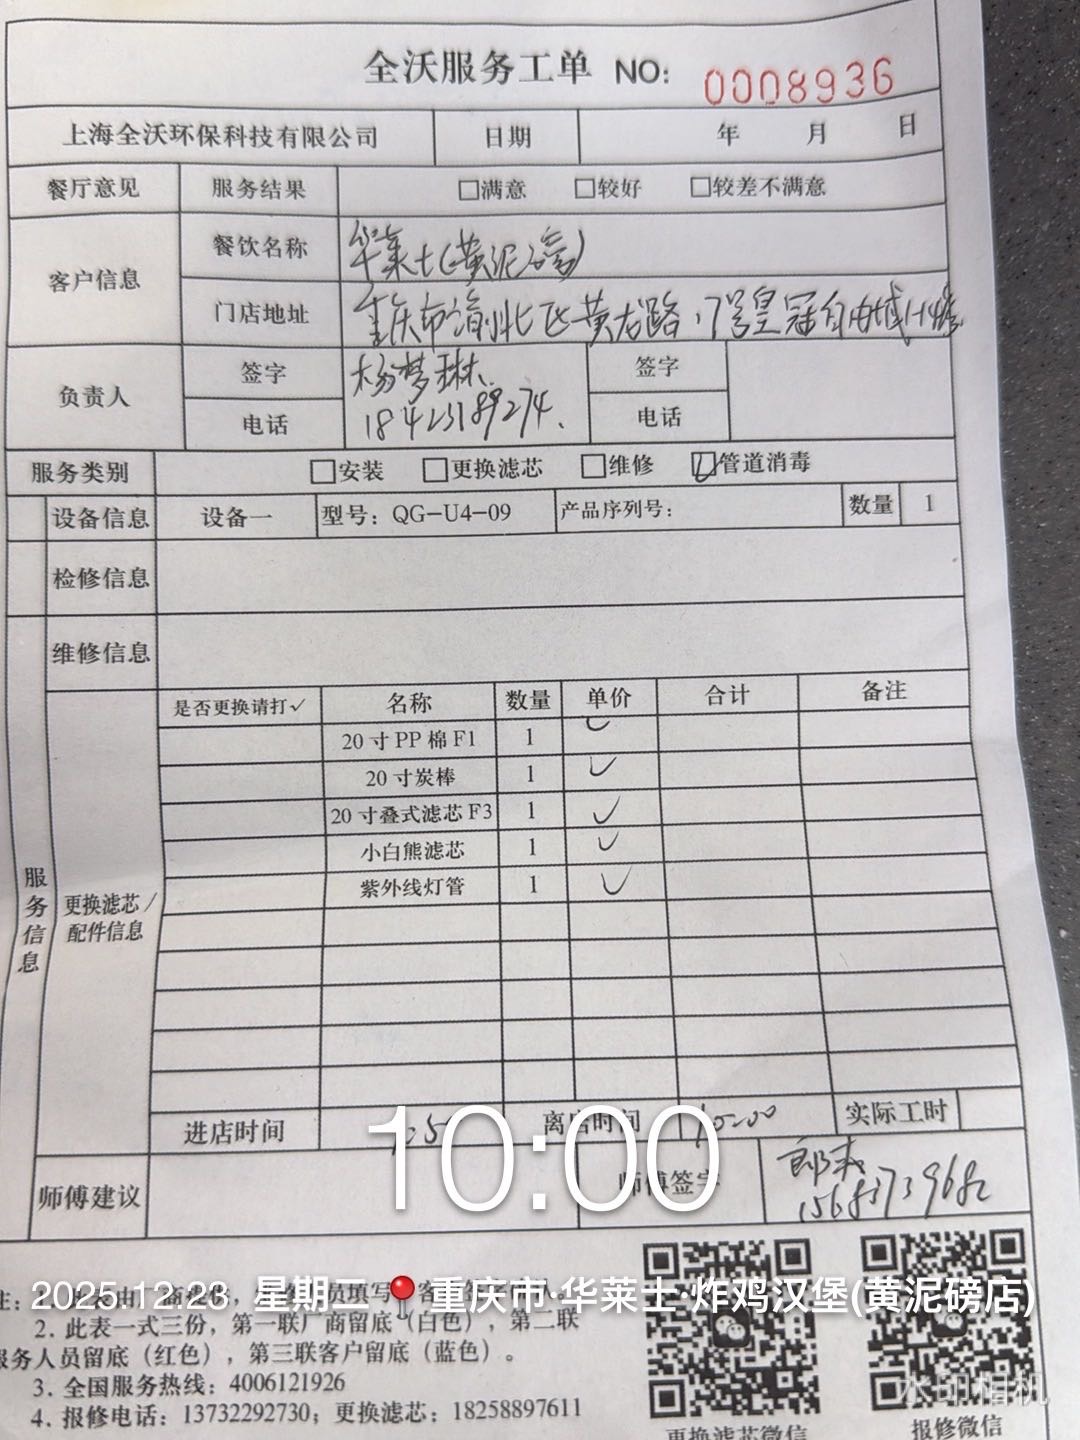 全沃服务工单 NO: 0008936
上海全沃环保科技有限公司 日期 年 月 日
餐厅意见 服务结果 □满意 □较好 □较差不满意
客户信息 餐饮名称 华莱士(黄泥磅)
门店地址 重庆市渝北区黄龙路17号皇冠自由城1-1楼
负责人 签字 杨梦琳 签字
电话 18423189274 电话
服务类别 □安装 □更换滤芯 □维修 ☑管道消毒
设备信息 设备一 型号: QG-U4-09 产品序列号: 数量 1
检修信息
维修信息
服务信息
更换滤芯/配件信息
是否更换请打✓ 名称 数量 单价 合计 备注
20寸PP棉F1 1 ✓
20寸炭棒 1 ✓
20寸叠式滤芯F3 1 ✓
小白熊滤芯 1 ✓
紫外线灯管 1 ✓
进店时间 离店时间 10:00 实际工时
10:00
师傅建议 师傅签字
2025.12.23 星期二 📍重庆市·华莱士·炸鸡汉堡(黄泥磅店)
2. 此表一式三份，第一联厂商留底（白色），第二联
服务人员留底（红色），第三联客户留底（蓝色）。
3. 全国服务热线：4006121926
4. 报修电话：13732292730；更换滤芯：18258897611
更换滤芯微信 报修微信
水印相机